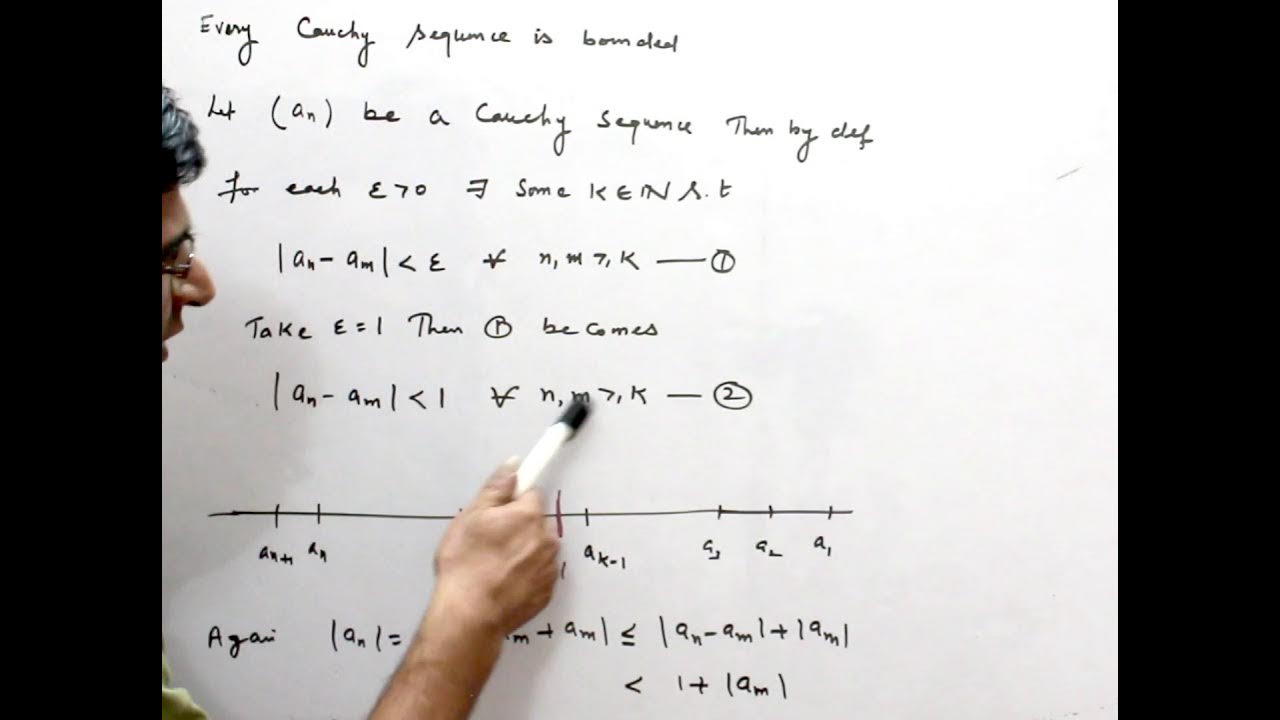 Every Cauchy sequnce is bounded
Let (aₙ) be a Cauchy sequence Then by def
for each ε>0 ∃ some K∈ℕ s.t
|aₙ - aₘ| < ε ∀ n, m ≥ K —— ①
Take ε = 1 Then ① becomes
|aₙ - aₘ| < 1 ∀ n, m ≥ K — ②
aₙ₊₁ aₙ aₖ₋₁ a₃ a₂ a₁
Again |aₙ| = m + aₘ| ≤ |aₙ - aₘ| + |aₘ|
< 1 + |aₘ|